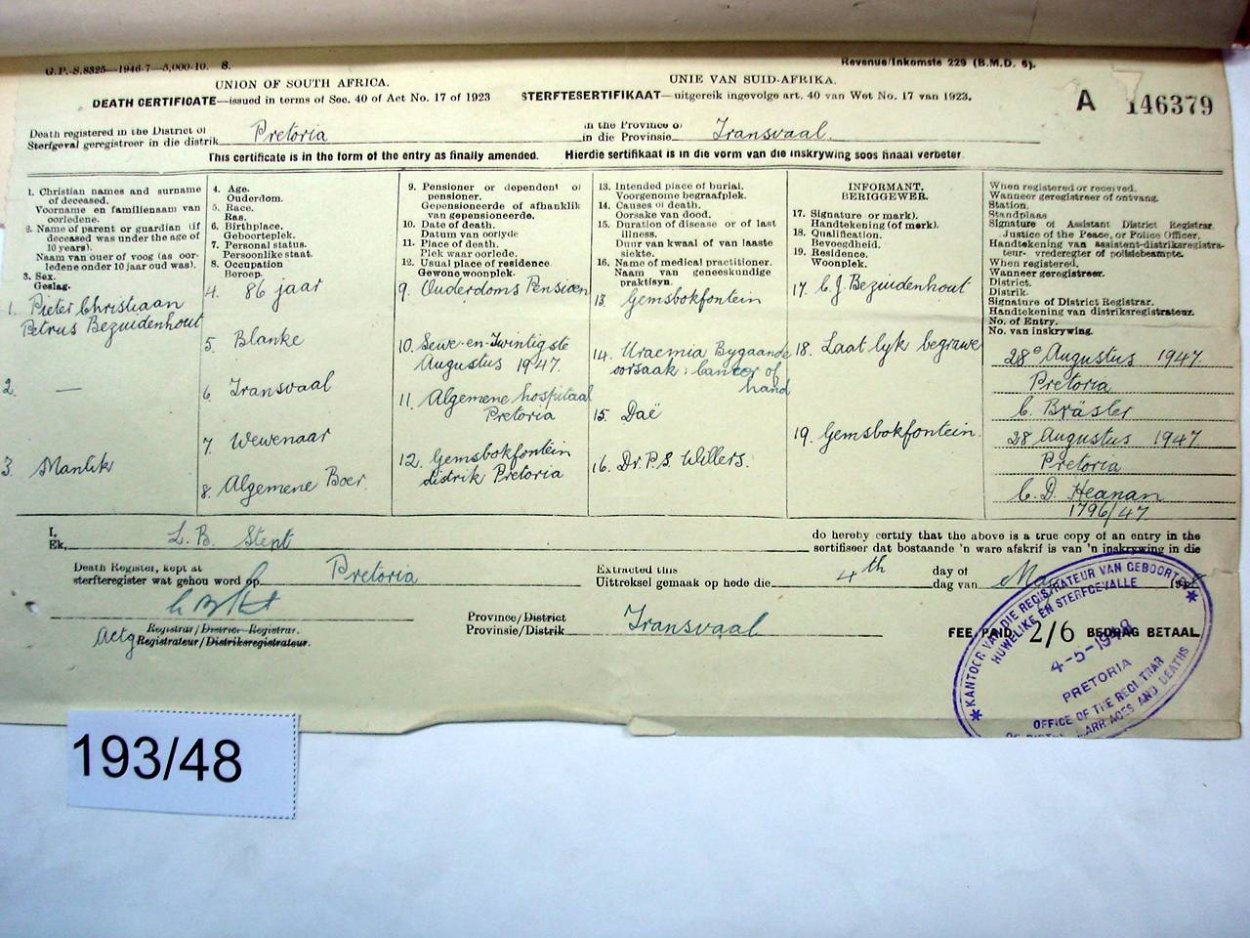 G.P.-S.8325—1946-7—5,000-10. S.
Revenue/Inkomste 229 (B.M.D. 6).
UNION OF SOUTH AFRICA.
UNIE VAN SUID-AFRIKA.
DEATH CERTIFICATE—issued in terms of Sec. 40 of Act No. 17 of 1923
STERFTESERTIFIKAAT—uitgereik ingevolge art. 40 van Wet No. 17 van 1923.
A 146379
Death registered in the District of
Sterfgeval geregistreer in die distrik Pretoria
in the Province of
in die Provinsie Transvaal.
This certificate is in the form of the entry as finally amended.
Hierdie sertifikaat is in die vorm van die inskrywing soos finaal verbeter.
1. Christian names and surname
of deceased.
Voorname en familienaam van
oorledene.
2. Name of parent or guardian (if
deceased was under the age of
10 years).
Naam van ouer of voog (as oor-
ledene onder 10 jaar oud was).
3. Sex.
Geslag.
1. Pieter Christiaan
Petrus Bezuidenhout
2. —
3. Manlik
4. Age.
Ouderdom.
5. Race.
Ras.
6. Birthplace.
Geboorteplek.
7. Personal status.
Persoonlike staat.
8. Occupation
Beroep.
4. 86 jaar
5. Blanke
6. Transvaal
7. Wewenaar
8. Algemene Boer
9. Pensioner or dependent of
pensioner.
Gepensioneerde of afhanklik
van gepensioneerde.
10. Date of death.
Datum van oorlyde
11. Place of death.
Plek waar oorlede.
12. Usual place of residence.
Gewone woonplek.
9. Ouderdoms Pensioen
10. Sewe-en-Twintigste
Augustus 1947.
11. Algemene hospitaal
Pretoria
12. Gemsbokfontein
distrik Pretoria
13. Intended place of burial.
Voorgenome begraafplek.
14. Causes of death.
Oorsake van dood.
15. Duration of disease or of last
illness.
Duur van kwaal of van laaste
siekte.
16. Name of medical practitioner.
Naam van geneeskundige
praktisyn.
13 Gemsbokfontein
14. Uraemia Bygaande
oorsaak: Cancer of
hand
15. Daë
16. Dr. P.S. Willers.
INFORMANT.
BERIGGEWER.
17. Signature or mark).
Handtekening (of merk).
18. Qualification.
Bevoegdheid.
19. Residence.
Woonplek.
17. C.J. Bezuidenhout
18. Laat lyk begrawe
19. Gemsbokfontein.
When registered or received.
Wanneer geregistreer of ontvang.
Station.
Standplaas
Signature of Assistant District Registrar,
Justice of the Peace, or Police Officer.
Handtekening van assistent-distriksregistra-
teur- vrederegter of polisiebeampte.
When registered.
Wanneer geregistreer.
District.
Distrik.
Signature of District Registrar.
Handtekening van distriksregistrateur.
No. of Entry.
No. van inskrywing.
28e Augustus 1947
Pretoria
C. Bräsler
28 Augustus 1947
Pretoria
C. D. Heanan
1796/47
I,
Ek, L. B. Stent
do hereby certify that the above is a true copy of an entry in the
sertifiseer dat bostaande 'n ware afskrif is van 'n inskrywing in die
Death Register, kept at
sterfteregister wat gehou word op Pretoria
Extracted this
Uittreksel gemaak op hede die 4th
day of
dag van
Actg Registrar/District Registrar.
Registrateur/Distriksregistrateur.
Province/District
Provinsie/Distrik Transvaal
FEE PAID 2/6 BEDRAG BETAAL
KANTOOR VAN DIE REGISTRATEUR VAN GEBOORTES
HUWELIKE EN STERFGEVALLE
4-5-1948
PRETORIA
OFFICE OF THE REGISTRAR
OF BIRTHS MARRIAGES AND DEATHS
193/48